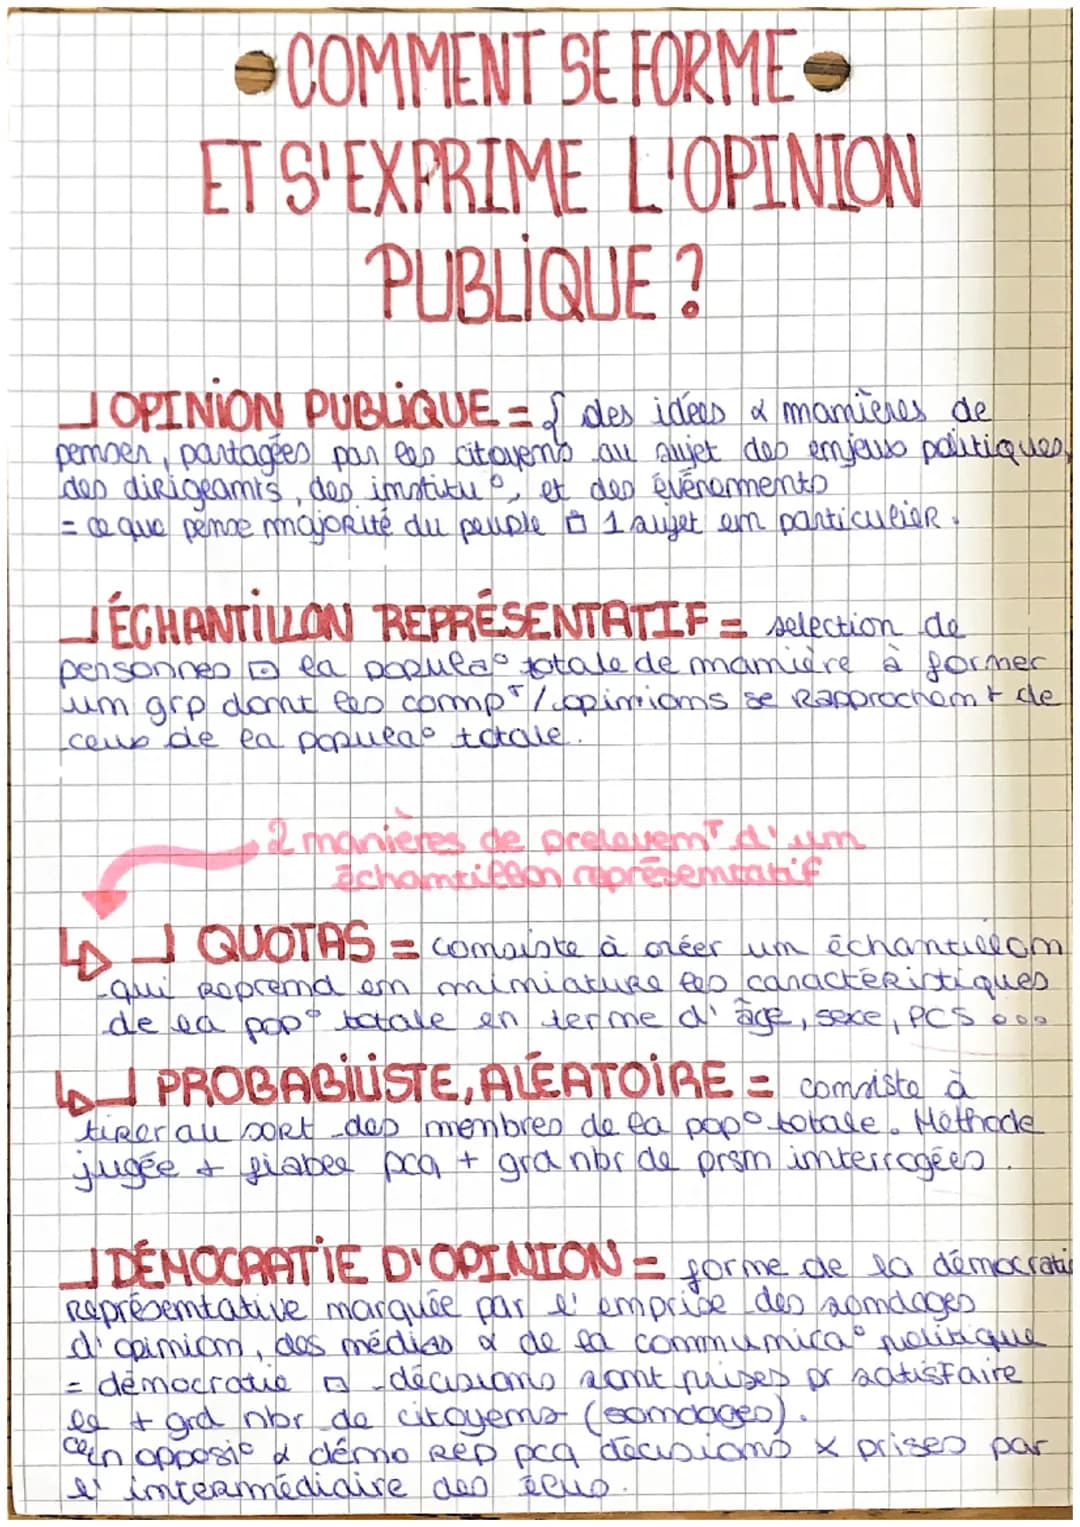 COMMENT SE FORME
ET S'EXPRIME L'OPINION
PUBLIQUE ?
OPINION PUBLIQUE = des idées & manières de
penser, partagées par les citoyens au sujet des enjeux politiques,
des dirigeants, des institu°, et des événements
= ce que pense majorité du peuple 1 sujet en particulier.
ÉCHANTILLON REPRÉSENTATIF = selection de
personnes la popula° totale de manière à former
um grp dont les compT / opinions se rapprochent de
ceux de la popula° totale.
2 manières de prelevemT d'um
échantillon représentatif
QUOTAS = consiste à créer um échantillon
qui reprend en miniature les caractéristiques
de la pop° totale en terme d'âge, sexe, PCS ...
PROBABILISTE, ALÉATOIRE = consiste à
tirer au sort des membres de la pop° totale. Méthode
jugée + fiable pcq + gra nbr de prsn interrogées.
DÉMOCRATIE D'OPINION = forme de la démocratie
représentative marquée par l'emprise des sondages
d'opinion, des médias & de la communica° politique
= démocratie décisions sont prises pr satisfaire
le + grd nbr de citoyens (sondages).
en opposi° à démo REP pcq décisions x prises par
l'intermédiaire des élus.